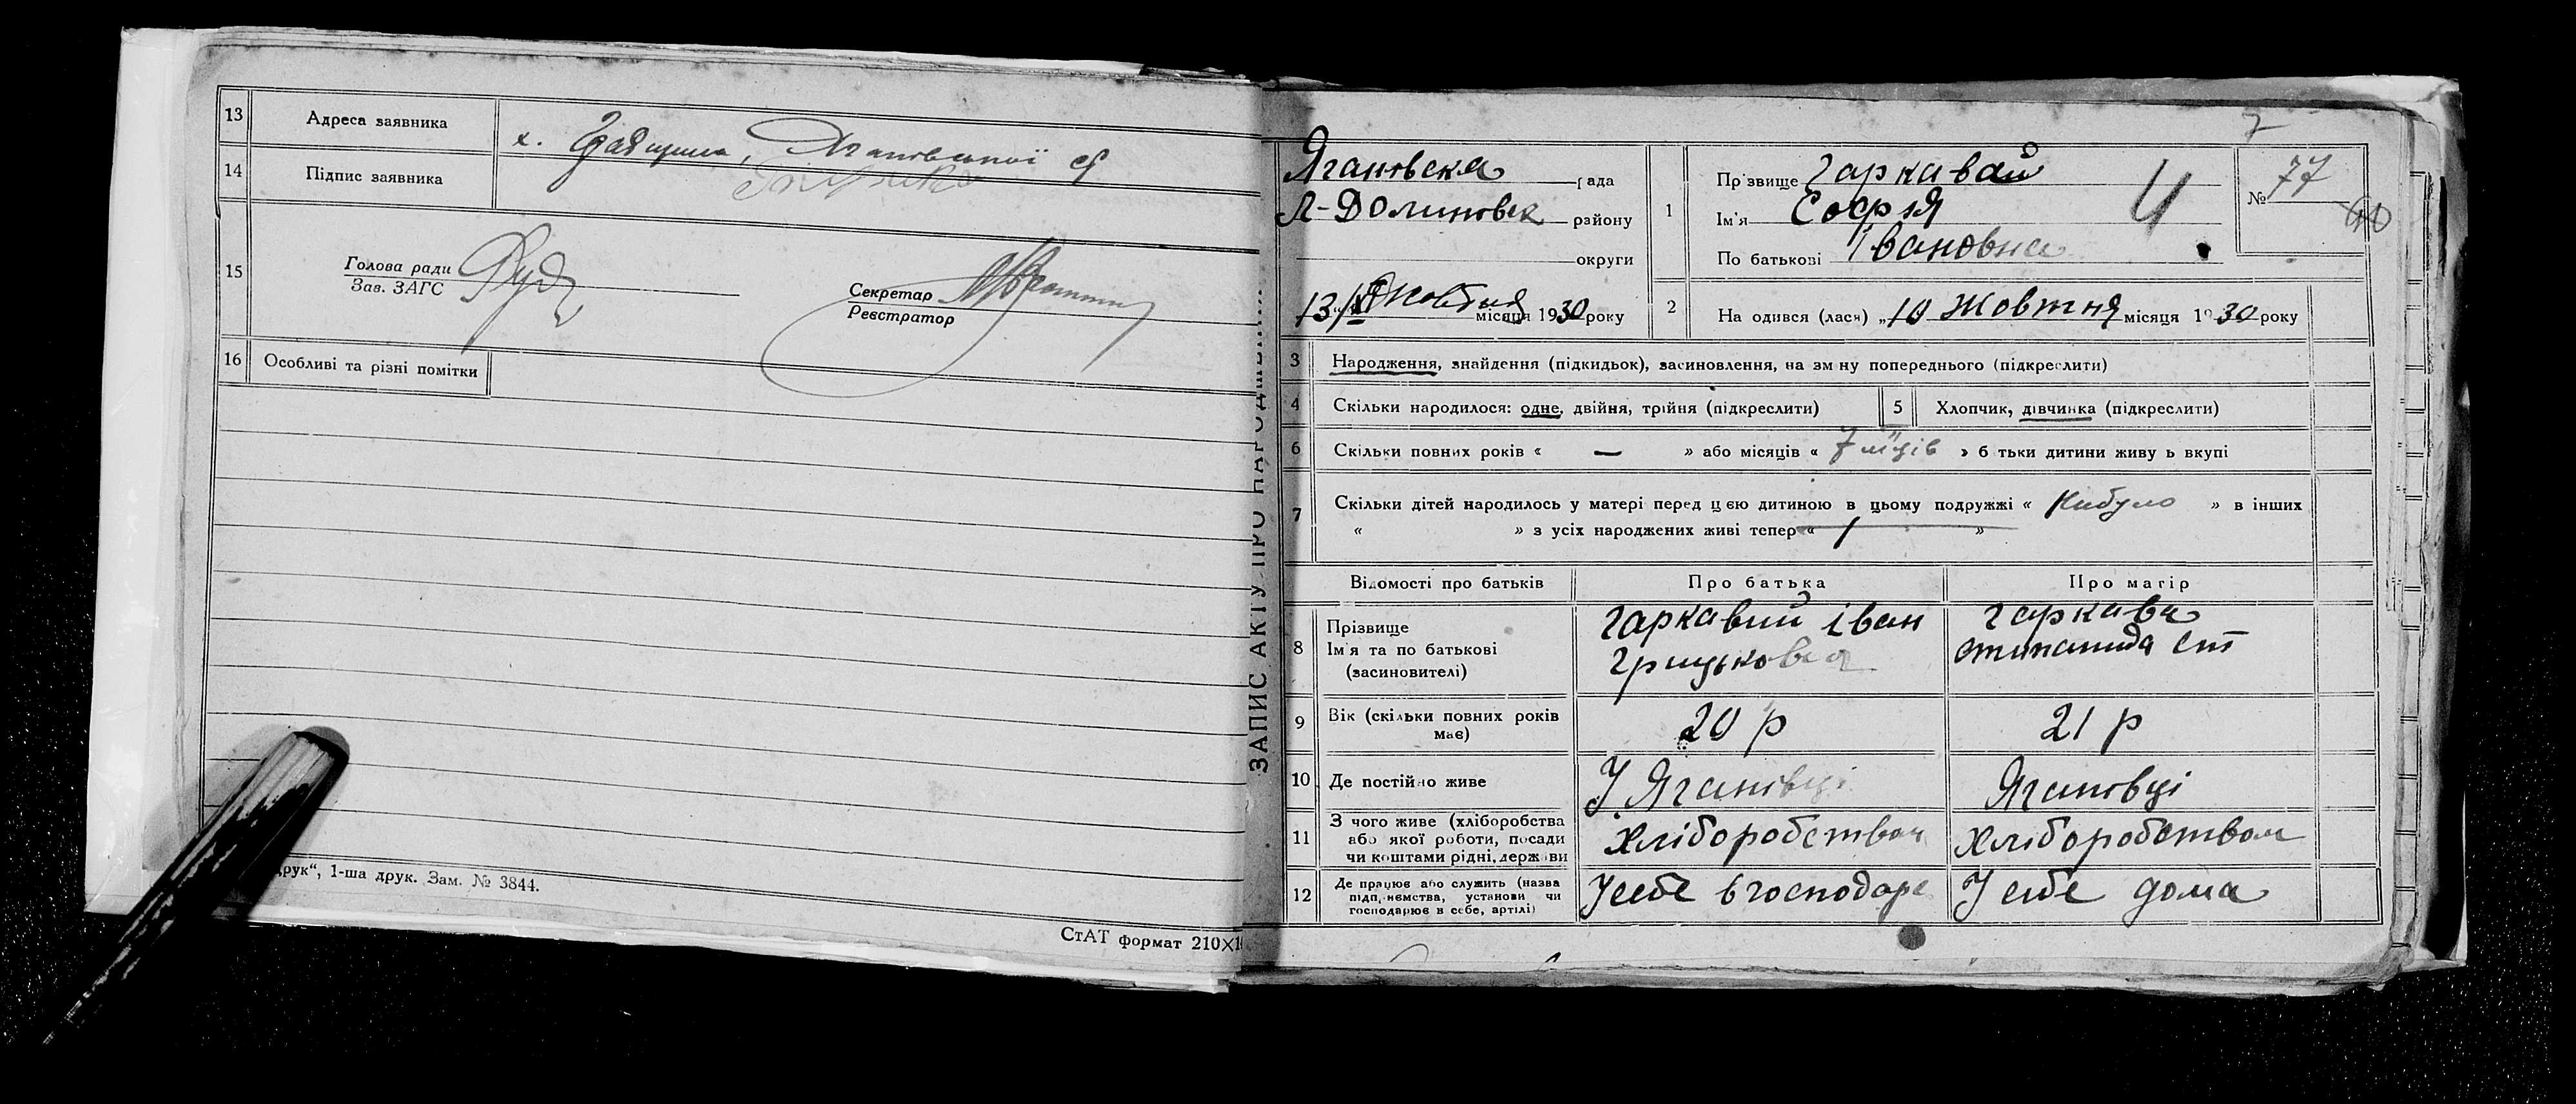 13 Адреса заявника х. , Ягановської с/р
14 Підпис заявника
15 Голова ради
Зав. ЗАГС
Секретар
Реєстратор
16 Особливі та різні помітки
друк“, 1-ша друк. Зам. № 3844.
СтАТ формат 210×1
ЗАПИС АКТУ ПРО НАРОДЖЕННЯ
7
Ягановська рада
Л-Долиновськ району
округи
13/X Жовтня місяця 1930 року
1 Прізвище Гаркавай
Ім'я Софія
По батькові Івановна
4
№ 77
40
2 Народився (лася) „10 Жовтня місяця 1930 року
3 Народження, знайдення (підкидьок), засиновлення, на зміну попереднього (підкреслити)
4 Скільки народилося: одне, двійня, трійня (підкреслити) 5 Хлопчик, дівчинка (підкреслити)
6 Скільки повних років « — » або місяців « 7 м-ців » батьки дитини живуть вкупі
7 Скільки дітей народилось у матері перед цією дитиною в цьому подружжі « Небуло » в інших
« » з усіх народжених живі тепер « »
Відомості про батьків Про батька Про матір
8 Прізвище
Ім'я та по батькові
(засиновителі)
Гаркавий Іван
Грицькович
Гаркава
Степанида Ст
9 Вік (скільки повних років має) 20 р 21 р
10 Де постійно живе У Ягановці Ягановці
11 З чого живе (хліборобства
або якої роботи, посади
чи коштами рідні, держави
Хліборобством Хліборобством
12 Де працює або служить (назва
підприємства, установи чи
господарює в себе, артілі)
У себе в господарс У себе дома